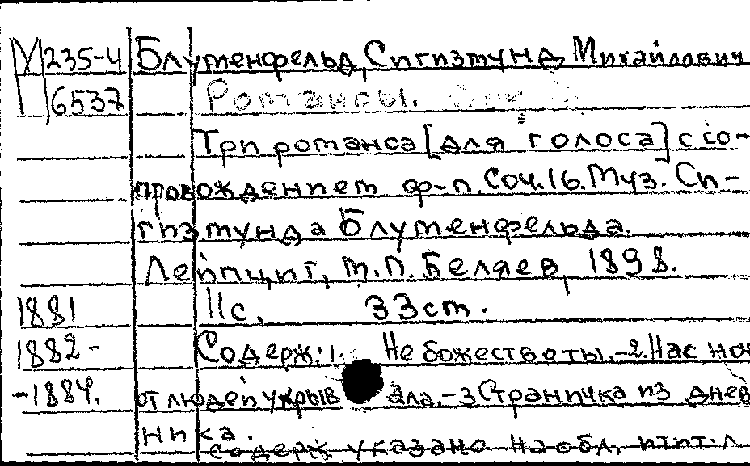 М 235-4 Блуменфельд, Сигизмунд Михайлович
П 6537 Романсы.
Три романса [для голоса] с со-
провождением ф-п. Соч. 16. Муз. Си-
гизмунда Блуменфельда.
Лейпциг, М.П. Беляев, 1898.
1881 11с. 33 см.
1882- Содерж: 1. Не божество ты.-2. Нас ноч
-1884. от людей укрывала.-3 Страничка из днев
ника.
Содерж указано на обл. и тит. л